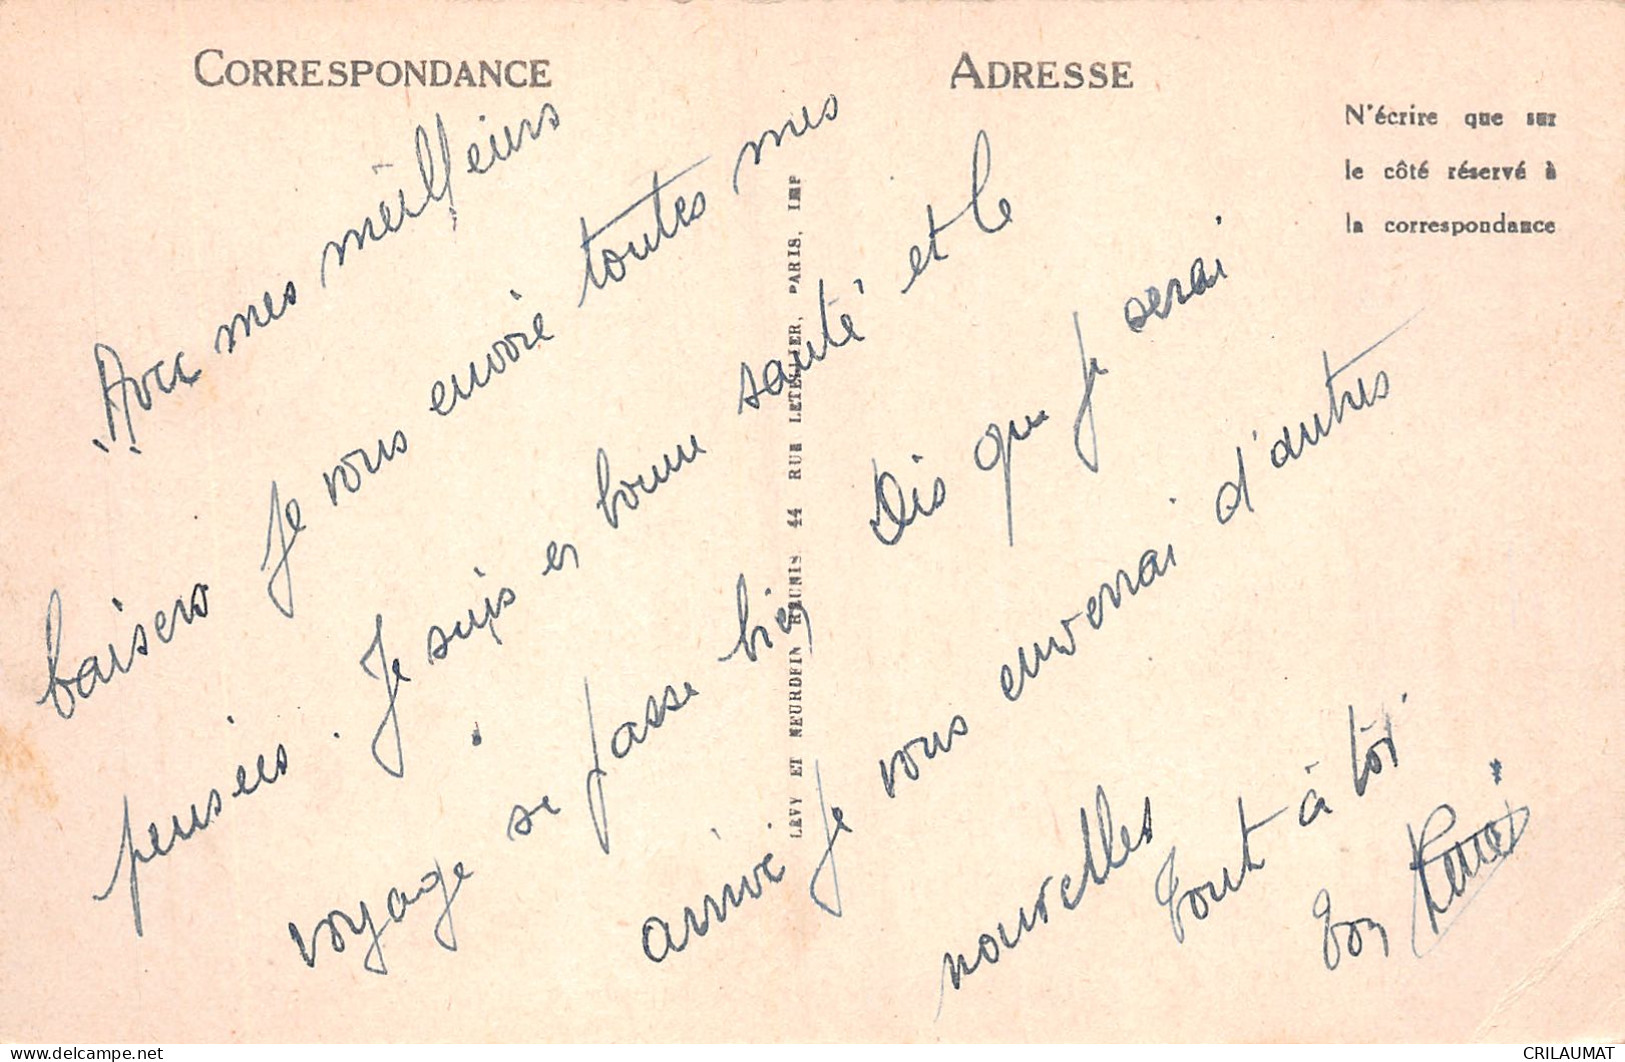 CORRESPONDANCE
ADRESSE
N'écrire que sur
le côté réservé à
la correspondance
LÉVY ET NEURDEIN RÉUNIS 44 RUE LETELLIER, PARIS, IMP
Avec mes meilleurs
baisers Je vous envoie toutes mes
pensées. Je suis en bonne santé et le
voyage se passe bien Dis que je serai
arrivé je vous enverrai d'autres
nouvelles Tout à toi
Ton
CRILAUMAT